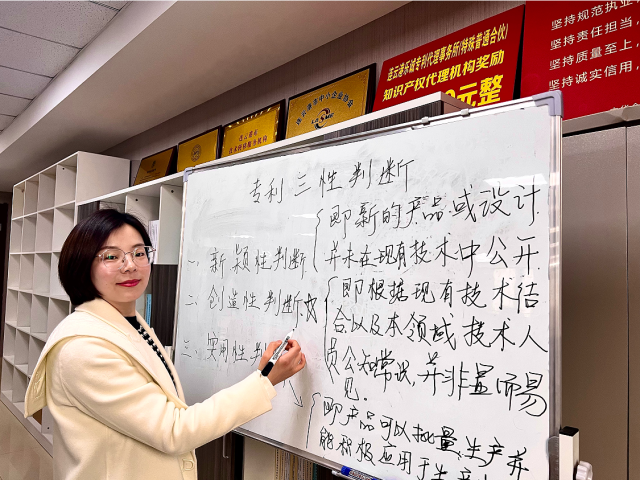 坚持规范执业
坚持责任担当
坚持质量至上,
坚持诚实信用,
专利代理事务所(特殊普通合伙)
知识产权代理机构奖励
元整
专利三性判断
一、新颖性判断
即新的产品或设计
并未在现有技术中公开
二、创造性判断
即根据现有技术结
合以及本领域技术人
员公知常识,并非显而易
见.
三、实用性判
即产品可以批量生产并
能积极应用于生产